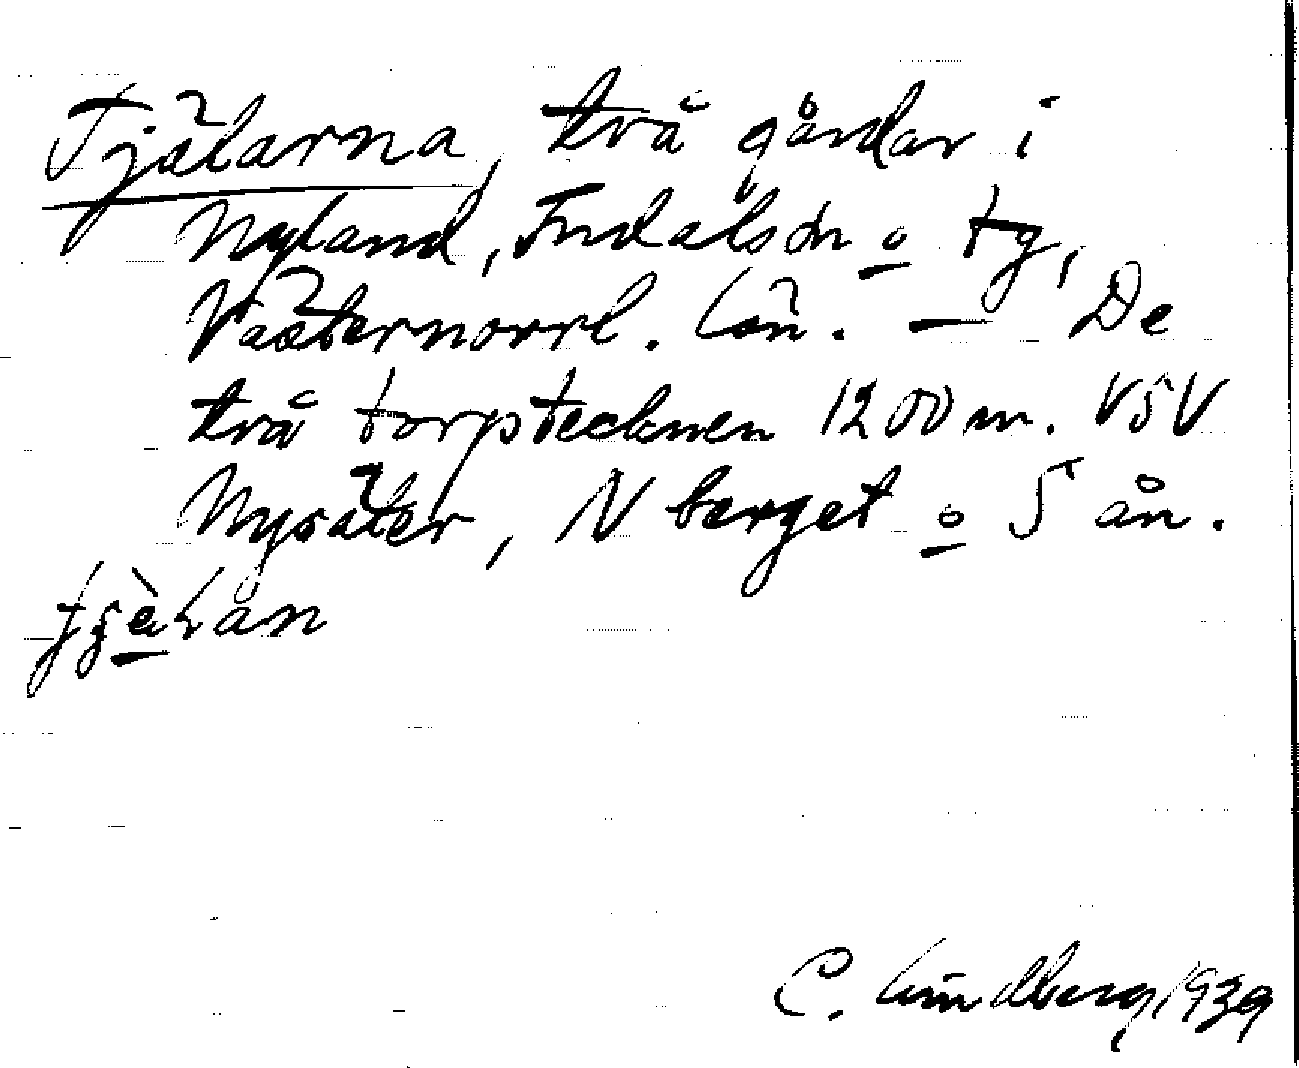 Tjälarna, två gårdar i
Nyland, Indals sn o tg,
Västernorrl. län. — De
två torptecknen 1200 m. VSV
Nysäter, N berget o S ån.
C. Lindberg 1939